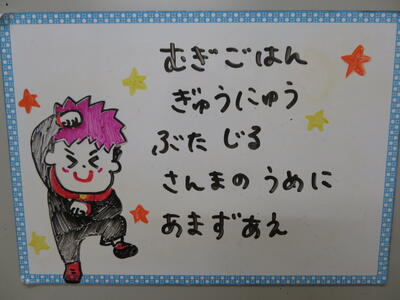 むぎごはん
ぎゅうにゅう
ぶたじる
さんまのうめに
あまずあえ